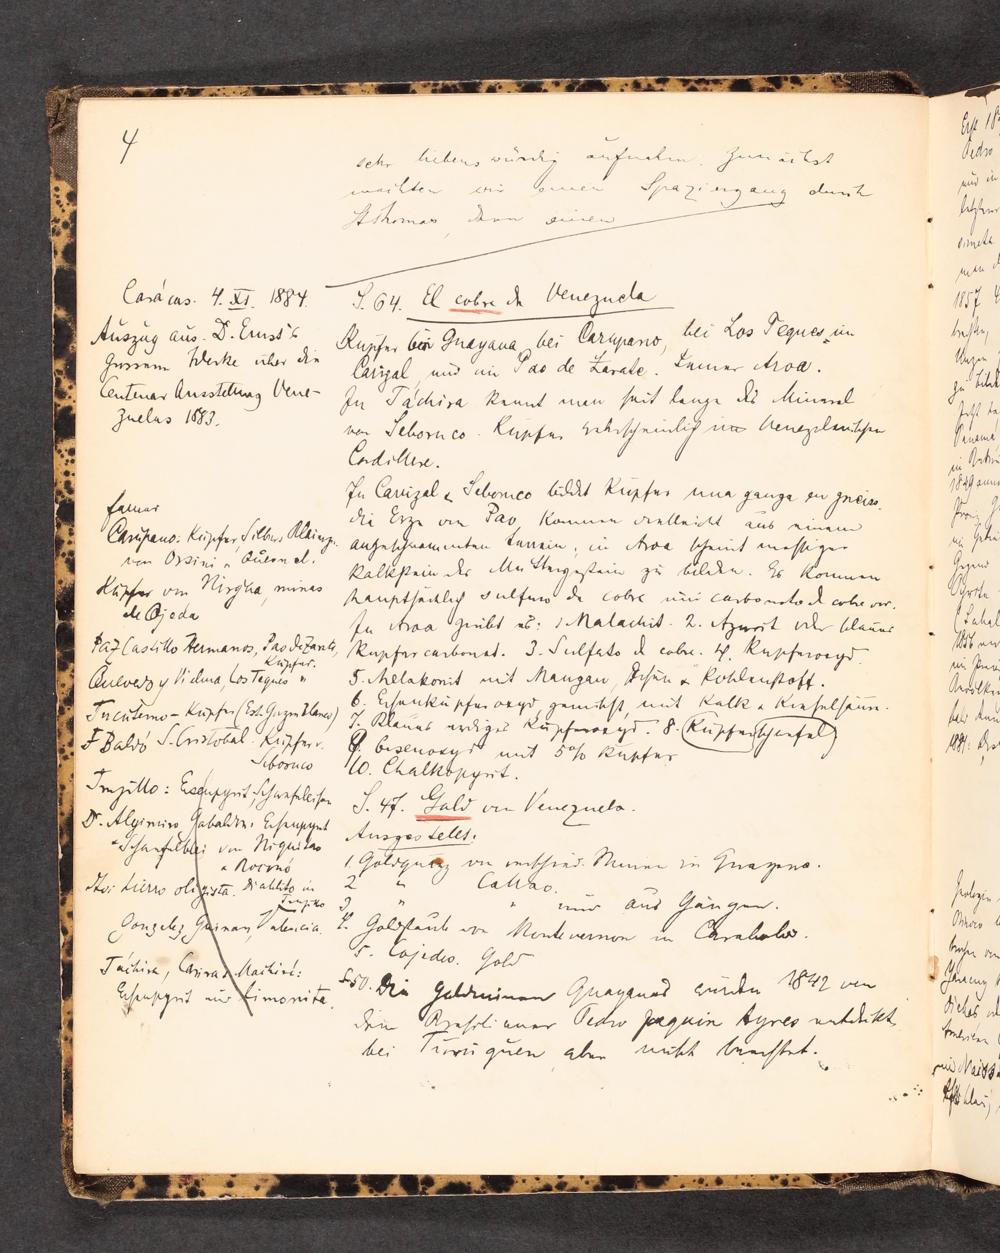 4
sehr liebenswürdig aufnahm. Zunächst
machten wir einen Spaziergang durch
St Thomas, dann einen
Carácas. 4. XI. 1884.
Auszug aus D. Ernst's
grossem Werke über die
Centenar Ausstellung Vene-
zuelas 1883.
ferner
Carúpano: Kupfer, Silber,
von Orsini &
Kupfer von Nirgua, minas
de Ojeda
Paz Castillo Hermanos, Pao de Zarate,
Kupfer.
Quevedo y Vidma, Los Teques "
Kupfer (Est. Guzm. Blanco)
F Baldó S. Cristobal. Kupfer v.
Seboruco
Trujillo: Eisenpyrit, Schwefeleisen
Dr. Algimiro Gabaldon: Eisenpyrit
" Schwefelblei von Niquitao
" Boconó
hierro oligista. Distrito in
Trujillo
Gonzalez Guinan, Valencia.
Táchira,
Eisenpyrit und Limonita.
S. 64. El cobre de Venezuela
Kupfer bei Guayana bei Carupano, bei Los Teques, im
Carizal, und im Pao de Zarate. Ferner Aroa.
In Táchira kennt man seit lange das Mineral
von Seboruco. Kupfer wahrscheinlich in Venezolanischen
Cordillere.
In Carrizal & Seboruco bildet Kupfer una ganga en gneiss.
die Erze von Pao, kommen vielleicht aus einem
angeschwemmten terrain, in Aroa scheint massiger
Kalkstein das Muttergestein zu bilden. Es kommen
hauptsächlich sulfuro de cobre und carbonato de cobre vor.
In Aroa giebt es: 1. Malachit. 2. Azurit oder blaues
Kupfercarbonat. 3. Sulfato de cobre. 4. Kupferoxyd.
5. Melakonit mit Mangan, Eisen & Kohlenstoff.
6. Eisenkupferoxyd gemischt mit Kalk & Kieselsäure.
7. Blaues erdiges Kupferoxyd. 8. Kupferschwefel
9. Eisenoxyd mit 5% Kupfer
10. Chalkopyrit.
S. 47. Gold von Venezuela.
Ausgestellt:
1 Goldquarz von verschied. Minen in Guayana.
2 " Callao.
3 " " und aus Gängen.
4. Goldstaub von Montevernon in Carabobo.
5. Cojedes. Gold
S. 50. Die Goldminen Guayanas wurden 1842 von
dem Brasilianer Pedro Joaquin Ayres entdeckt,
bei Tupuquen aber nicht beachtet.